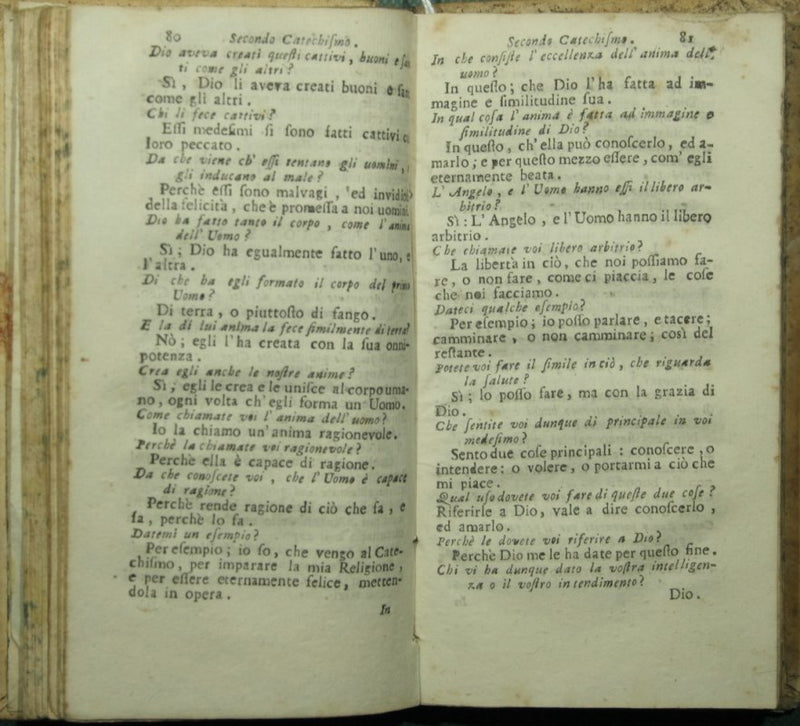 80 Secondo Catechismo.
Dio aveva creati questi cattivi, buoni
ti come gli altri?
Sì, Dio li avera creati buoni e
come gli altri.
Chi li fece cattivi?
Essi medesimi si sono fatti cattivi
loro peccato.
Da che viene ch' essi tentano gli uomini,
gli inducano al male?
Perchè essi sono malvagi, ed invidiosi
della felicità, che è promessa a noi uomini
Dio ha fatto tanto il corpo, come l'anima
dell' Uomo?
Sì; Dio ha egualmente fatto l'uno, e
l'altra.
Di che ha egli formato il corpo del primo
Uomo?
Di terra, o piuttosto di fango.
E la di lui anima la fece similmente di terra?
Nò; egli l'ha creata con la sua onni-
potenza.
Crea egli anche le nostre anime?
Sì, egli le crea e le unisce al corpo uma-
no, ogni volta ch'egli forma un Uomo.
Come chiamate voi l'anima dell' uomo?
Io la chiamo un'anima ragionevole.
Perchè la chiamate voi ragionevole?
Perchè ella è capace di ragione.
Da che conoscete voi, che l'Uomo è capace
di ragione?
Perchè rende ragione di ciò che fa, e
fa, perchè lo fa.
Datemi un esempio?
Per esempio; io so, che vengo al Cate-
chismo, per imparare la mia Religione,
e per essere eternamente felice, metten-
dola in opera.
In
Secondo Catechismo. 81
In che consiste l'eccellenza dell' anima dell'
uomo?
In questo; che Dio l'ha fatta ad im-
magine e similitudine sua.
In qual cosa l'anima è fatta ad immagine o
similitudine di Dio?
In questo, ch'ella può conoscerlo, ed a-
marlo; e per questo mezzo essere, com' egli
eternamente beata.
L'Angelo, e l'Uomo hanno essi il libero ar-
bitrio?
Sì: L'Angelo, e l'Uomo hanno il libero
arbitrio.
Che chiamate voi libero arbitrio?
La libertà in ciò, che noi possiamo fa-
re, o non fare, come ci piaccia, le cose
che noi facciamo.
Dateci qualche esempio?
Per esempio; io posso parlare, e tacere;
camminare, o non camminare; così del
restante.
Potete voi fare il simile in ciò, che riguarda
la salute?
Sì; lo posso fare, ma con la grazia di
Dio.
Che sentite voi dunque di principale in voi
medesimo?
Sento due cose principali: conoscere, o
intendere: o volere, o portarmi a ciò che
mi piace.
Qual uso dovete voi fare di queste due cose?
Riferirle a Dio, vale a dire conoscerlo,
ed amarlo.
Perchè le dovete voi riferire a Dio?
Perchè Dio me le ha date per questo fine.
Chi vi ha dunque dato la vostra intelligen-
za o il vostro intendimento?
Dio.